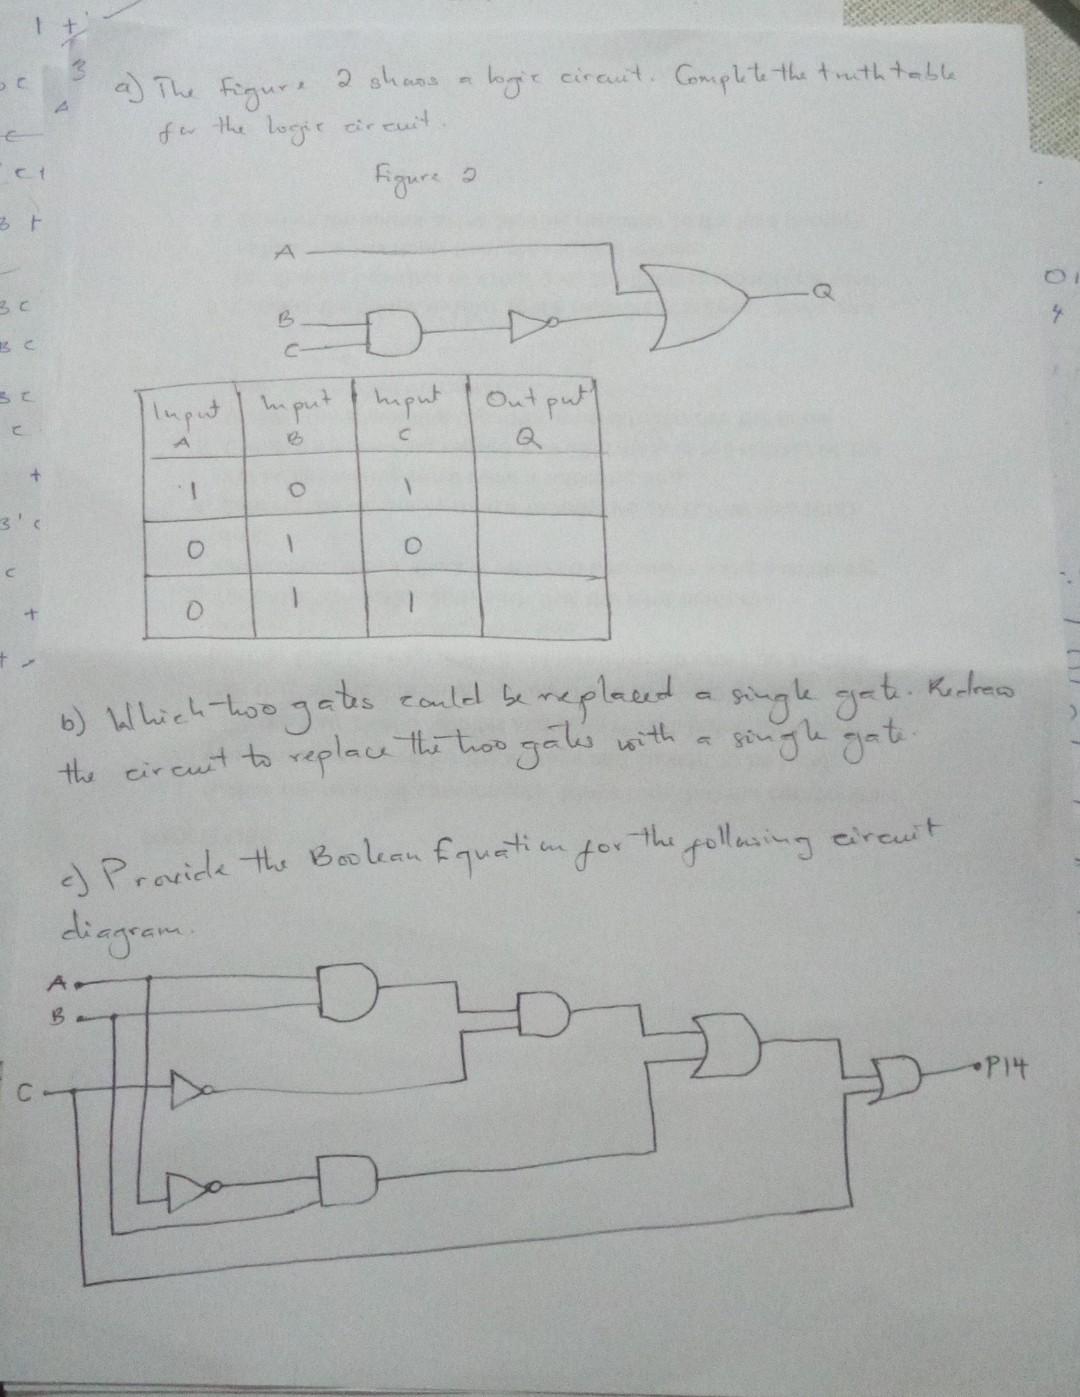 3
a) The figure 2 shows a logic circuit. Complete the truth table
for the logic circuit.
Figure 2
A
Q
B
C
Input Input Input Output
A B C Q
1 0 1
0 1 0
0 1 1
b) Which two gates could be replaced a single gate. Redraw
the circuit to replace the two gates with a single gate.
c) Provide the Boolean Equation for the following circuit
diagram.
A
B
C
P14